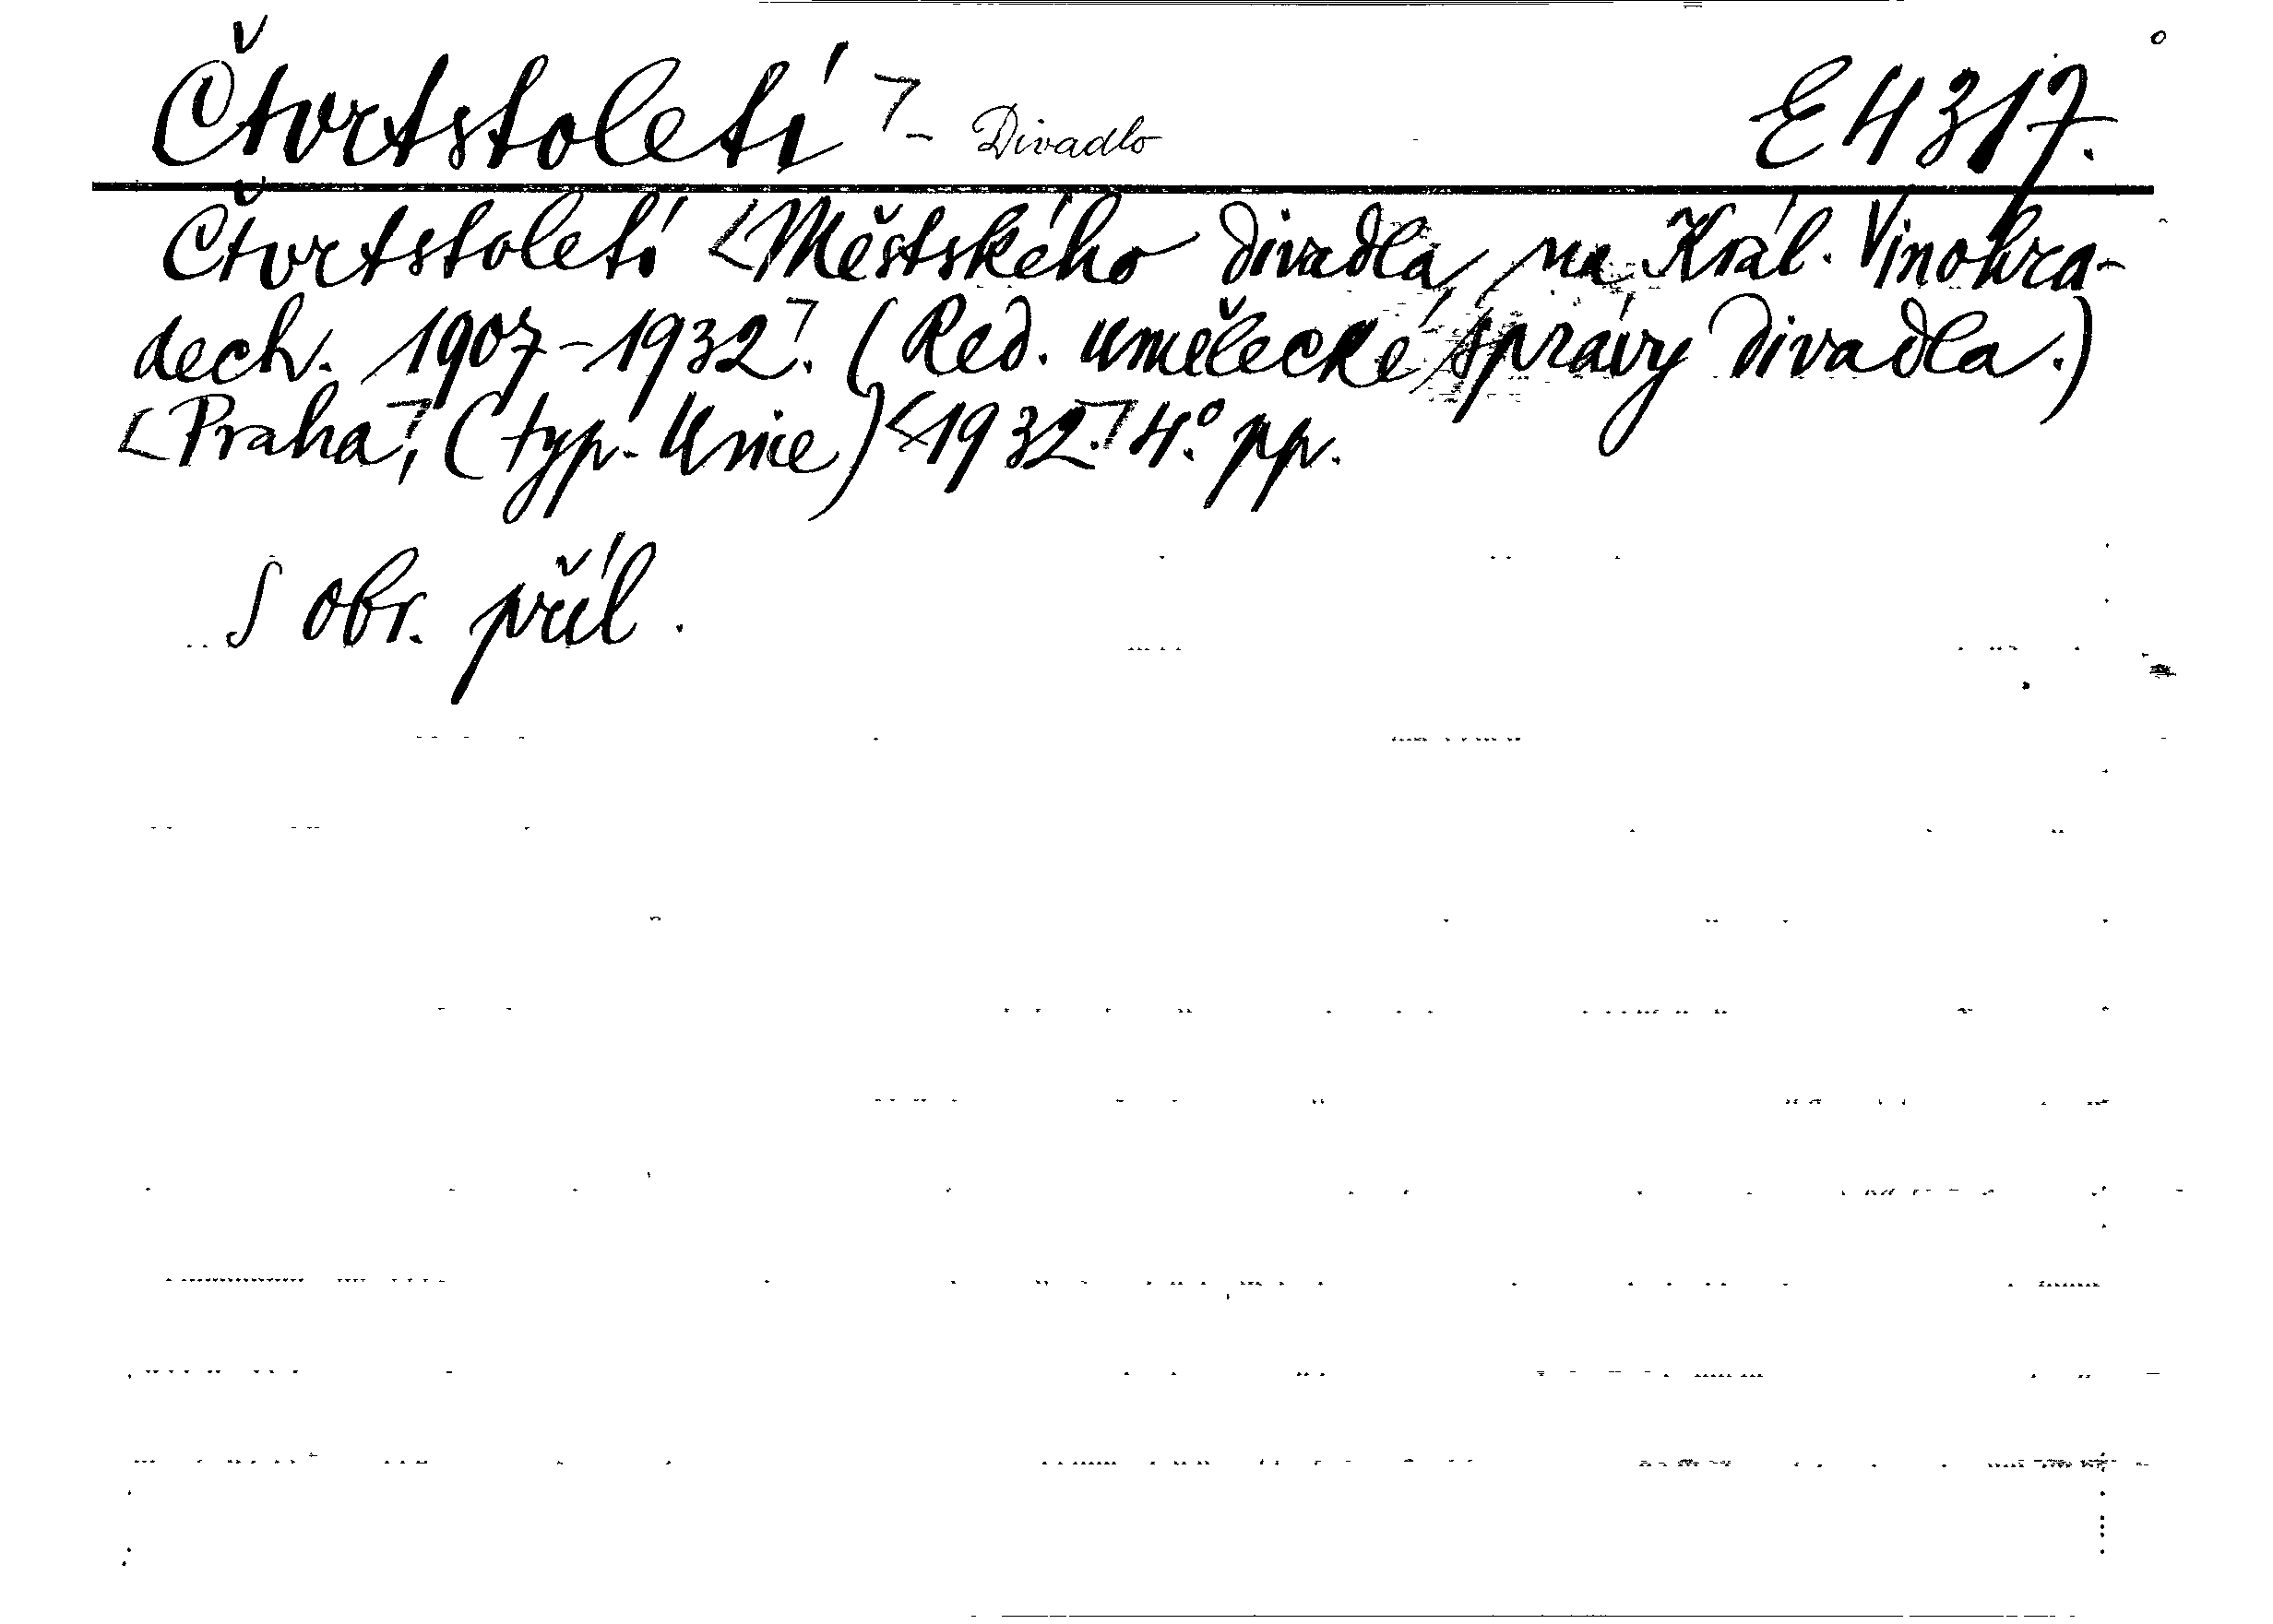 Čtvrtstoletí ⌝ - Divadlo E 4317.
Čtvrtstoletí ⌞Městského divadla na Král. Vinohra-
dech. 1907-1932⌝. (Red. umělecké správy divadla.)
⌞Praha⌝, (typ. Unie) ⌞1932.⌝ 4.° pp.
S obr. příl.